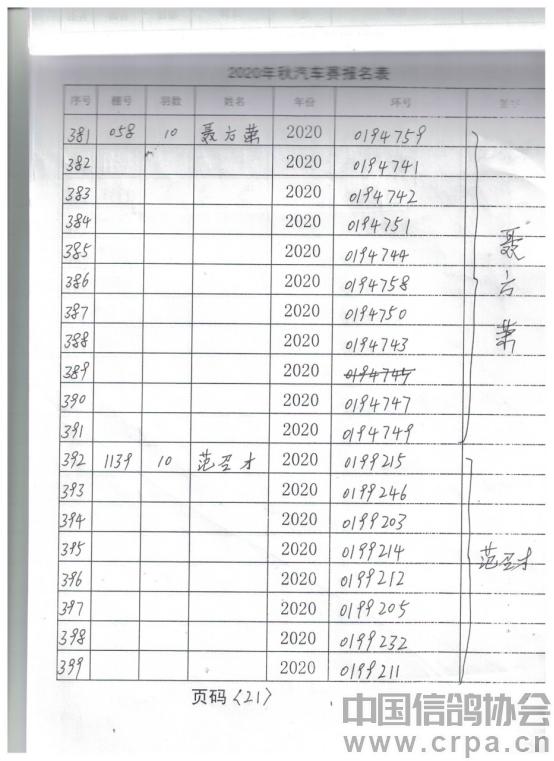 2020年秋汽车赛报名表
序号 棚号 羽数 姓名 年份 环号 签字
381 058 10 聂方荣 2020 0194759
382 2020 0194741
383 2020 0194742
384 2020 0194751
385 2020 0194744
386 2020 0194758
387 2020 0194750
388 2020 0194743
389 2020 0194745
390 2020 0194747
391 2020 0194749
聂方荣
392 1139 10 范召才 2020 0199215
393 2020 0199246
394 2020 0199203
395 2020 0199214
396 2020 0199212
397 2020 0199205
398 2020 0199232
399 2020 0199211
范召才
页码〈21〉
中国信鸽协会
www.crpa.cn